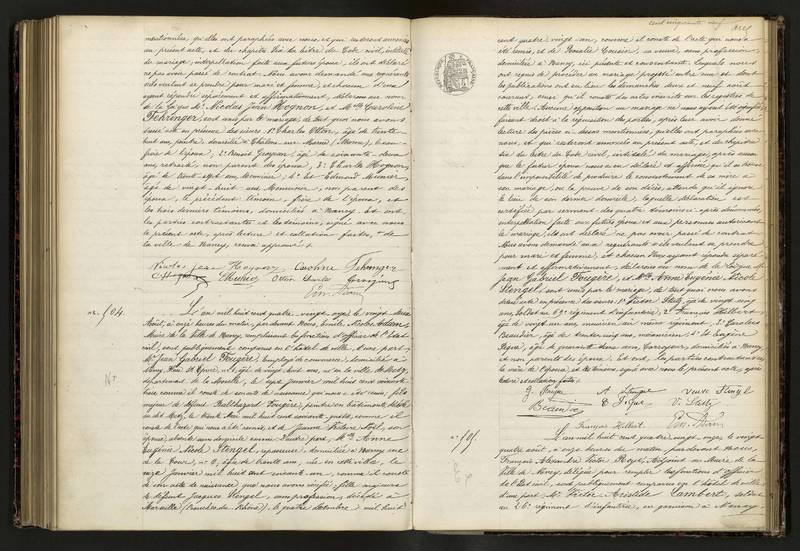 mentionnées, qu'elles ont paraphées avec nous et qui resteront annexées
au présent acte, et du chapitre six du titre du Code civil, intitulé
du mariage, interpellation faite aux futurs époux, ils ont déclaré
ne pas avoir passé de contrat. Nous avons demandé aux requérants
s'ils veulent se prendre pour mari et femme, et chacun d'eux
ayant répondu séparément et affirmativement, déclarons au nom
de la loi que Mr Nicolas Jean Hognon, et Mlle Caroline
Fehringer, sont unis par le mariage, de tout quoi nous avons
dressé acte en présence des sieurs 1° Charles Otter, âgé de trente
huit ans, peintre, domicilié à Châlons sur Marne (Marne), beau
frère de l'époux, 2° Benoit Grosjean, âgé de soixante deux
ans, retraité, non parent des époux, 3° Charles Hognon,
âgé de trente sept ans, 4° et Edmond Meunier,
âgé de vingt huit ans, Menuisier, non parent des
époux, le précédent témoin, frère de l'époux, et
les trois derniers témoins, domiciliés à Nancy. Et ont
les parties contractantes et les témoins, signé avec nous
le présent acte, après lecture et collation faites,
la ville de Nancy,
Nicolas Jean Hognon Caroline Fehringer
C Hognon E Meunier Otter Charles Grosjean
n° 504.
L'an mil huit cent quatre vingt onze, le vingt deux
Août, à onze heures du matin, par devant Nous, Emile Nicolas Adam
Maire de la Ville de Nancy, remplissant les fonctions d'officier de l'Etat
civil, sont publiquement comparus en l'hôtel de ville, d'une part
Mr Jean Gabriel Fougère, Employé de commerce, domicilié à
Nancy, Rue St Epvre, n° 1, âgé de vingt huit ans, né en la ville de Metz,
département de la Moselle, le sept Janvier mil huit cent soixante
trois comme il conste de l'acte de naissance qui nous a été remis; fils
majeur de défunt Balthazard Fougère, peintre en bâtiments, décédé
au dit Metz, le trente Juin mil huit cent soixante quatre, comme il
conste de l'acte qui nous a été remis, et de Jeanne Victoire Toil, son
épouse, absente sans
Eugénie Nicole Stengel, repasseuse, domiciliée à Nancy, rue
de la Tour, n° 8, âgée de trente ans, née en cette ville, le
onze Janvier mil huit cent soixante un, comme il conste
de son acte de naissance que nous avons vérifié; fille majeure
de défunt Jacques Stengel, sans profession, décédé à
Marseille (Bouches du Rhône), le quatre décembre mil huit
cent cinquante neuf
cent quatre vingt un, comme il conste de l'acte qui nous a
été remis, et de Rosalie Cousin, sa veuve, sans profession,
domiciliée à Nancy, ici présente et consentante. Lesquels nous
ont requis de procéder au mariage projeté entre eux et dont
les publications ont eu lieu les dimanches deux et neuf août
courant, ainsi qu'il conste de nos registres
cette ville. Aucune opposition au mariage ne nous ayant été signifiée
faisant droit à la réquisition des parties, après leur avoir donné
lecture des pièces ci dessus mentionnées, qu'elles ont paraphées avec
nous, et qui resteront annexées au présent acte, et du chapitre
six du titre du Code civil, intitulé du mariage, après aussi
que le futur époux nous a déclaré et affirmé, qu'il se trouve
dans l'impossibilité de produire le consentement de sa mère à
son mariage, ou la preuve de son décès, attendu qu'il ignore
le lieu de son dernier domicile, laquelle déclaration est
certifiée par serment des quatre témoins ci après dénommés,
interpellation faite aux futurs époux et aux personnes autorisant
le mariage, ils ont déclaré ne pas avoir passé de contrat.
Nous avons demandé aux requérants s'ils veulent se prendre
pour mari et femme, et chacun d'eux ayant répondu séparé-
ment et affirmativement, déclarons au nom de la loi que Mr
Jean Gabriel Fougère, et Mlle Anne Eugénie Nicole
Stengel, sont unis par le mariage, de tout quoi nous avons
dressé acte en présence des sieurs 1° Victor Stutz, âgé de vingt cinq
ans, soldat au 69e régiment d'infanterie, 2° François Hilbert,
âgé de vingt un ans, musicien au même régiment, 3°
Beaudin, âgé de trente cinq ans, 4° et Eugène
âgé de quarante deux ans, domiciliés à Nancy
et non parents des époux. Et ont, les parties contractantes
la mère de l'épouse, et les témoins, signé avec nous le présent acte, après
lecture et collation faites.
A. Stengel veuve Stengel
Beaudin V. Stutz
François Hilbert
n° 505.
L'an mil huit cent quatre vingt onze, le vingt
quatre août, à onze heures du matin, par devant Nous,
François Alexandre Victor Adjoint au Maire de la
Ville de Nancy, délégué pour remplir les fonctions d'officier
de l'Etat civil, sont publiquement comparus en l'hôtel de ville
d'une part, Mr Victor Aristide Lambert, soldat
au 26e régiment d'infanterie, en garnison à Nancy,